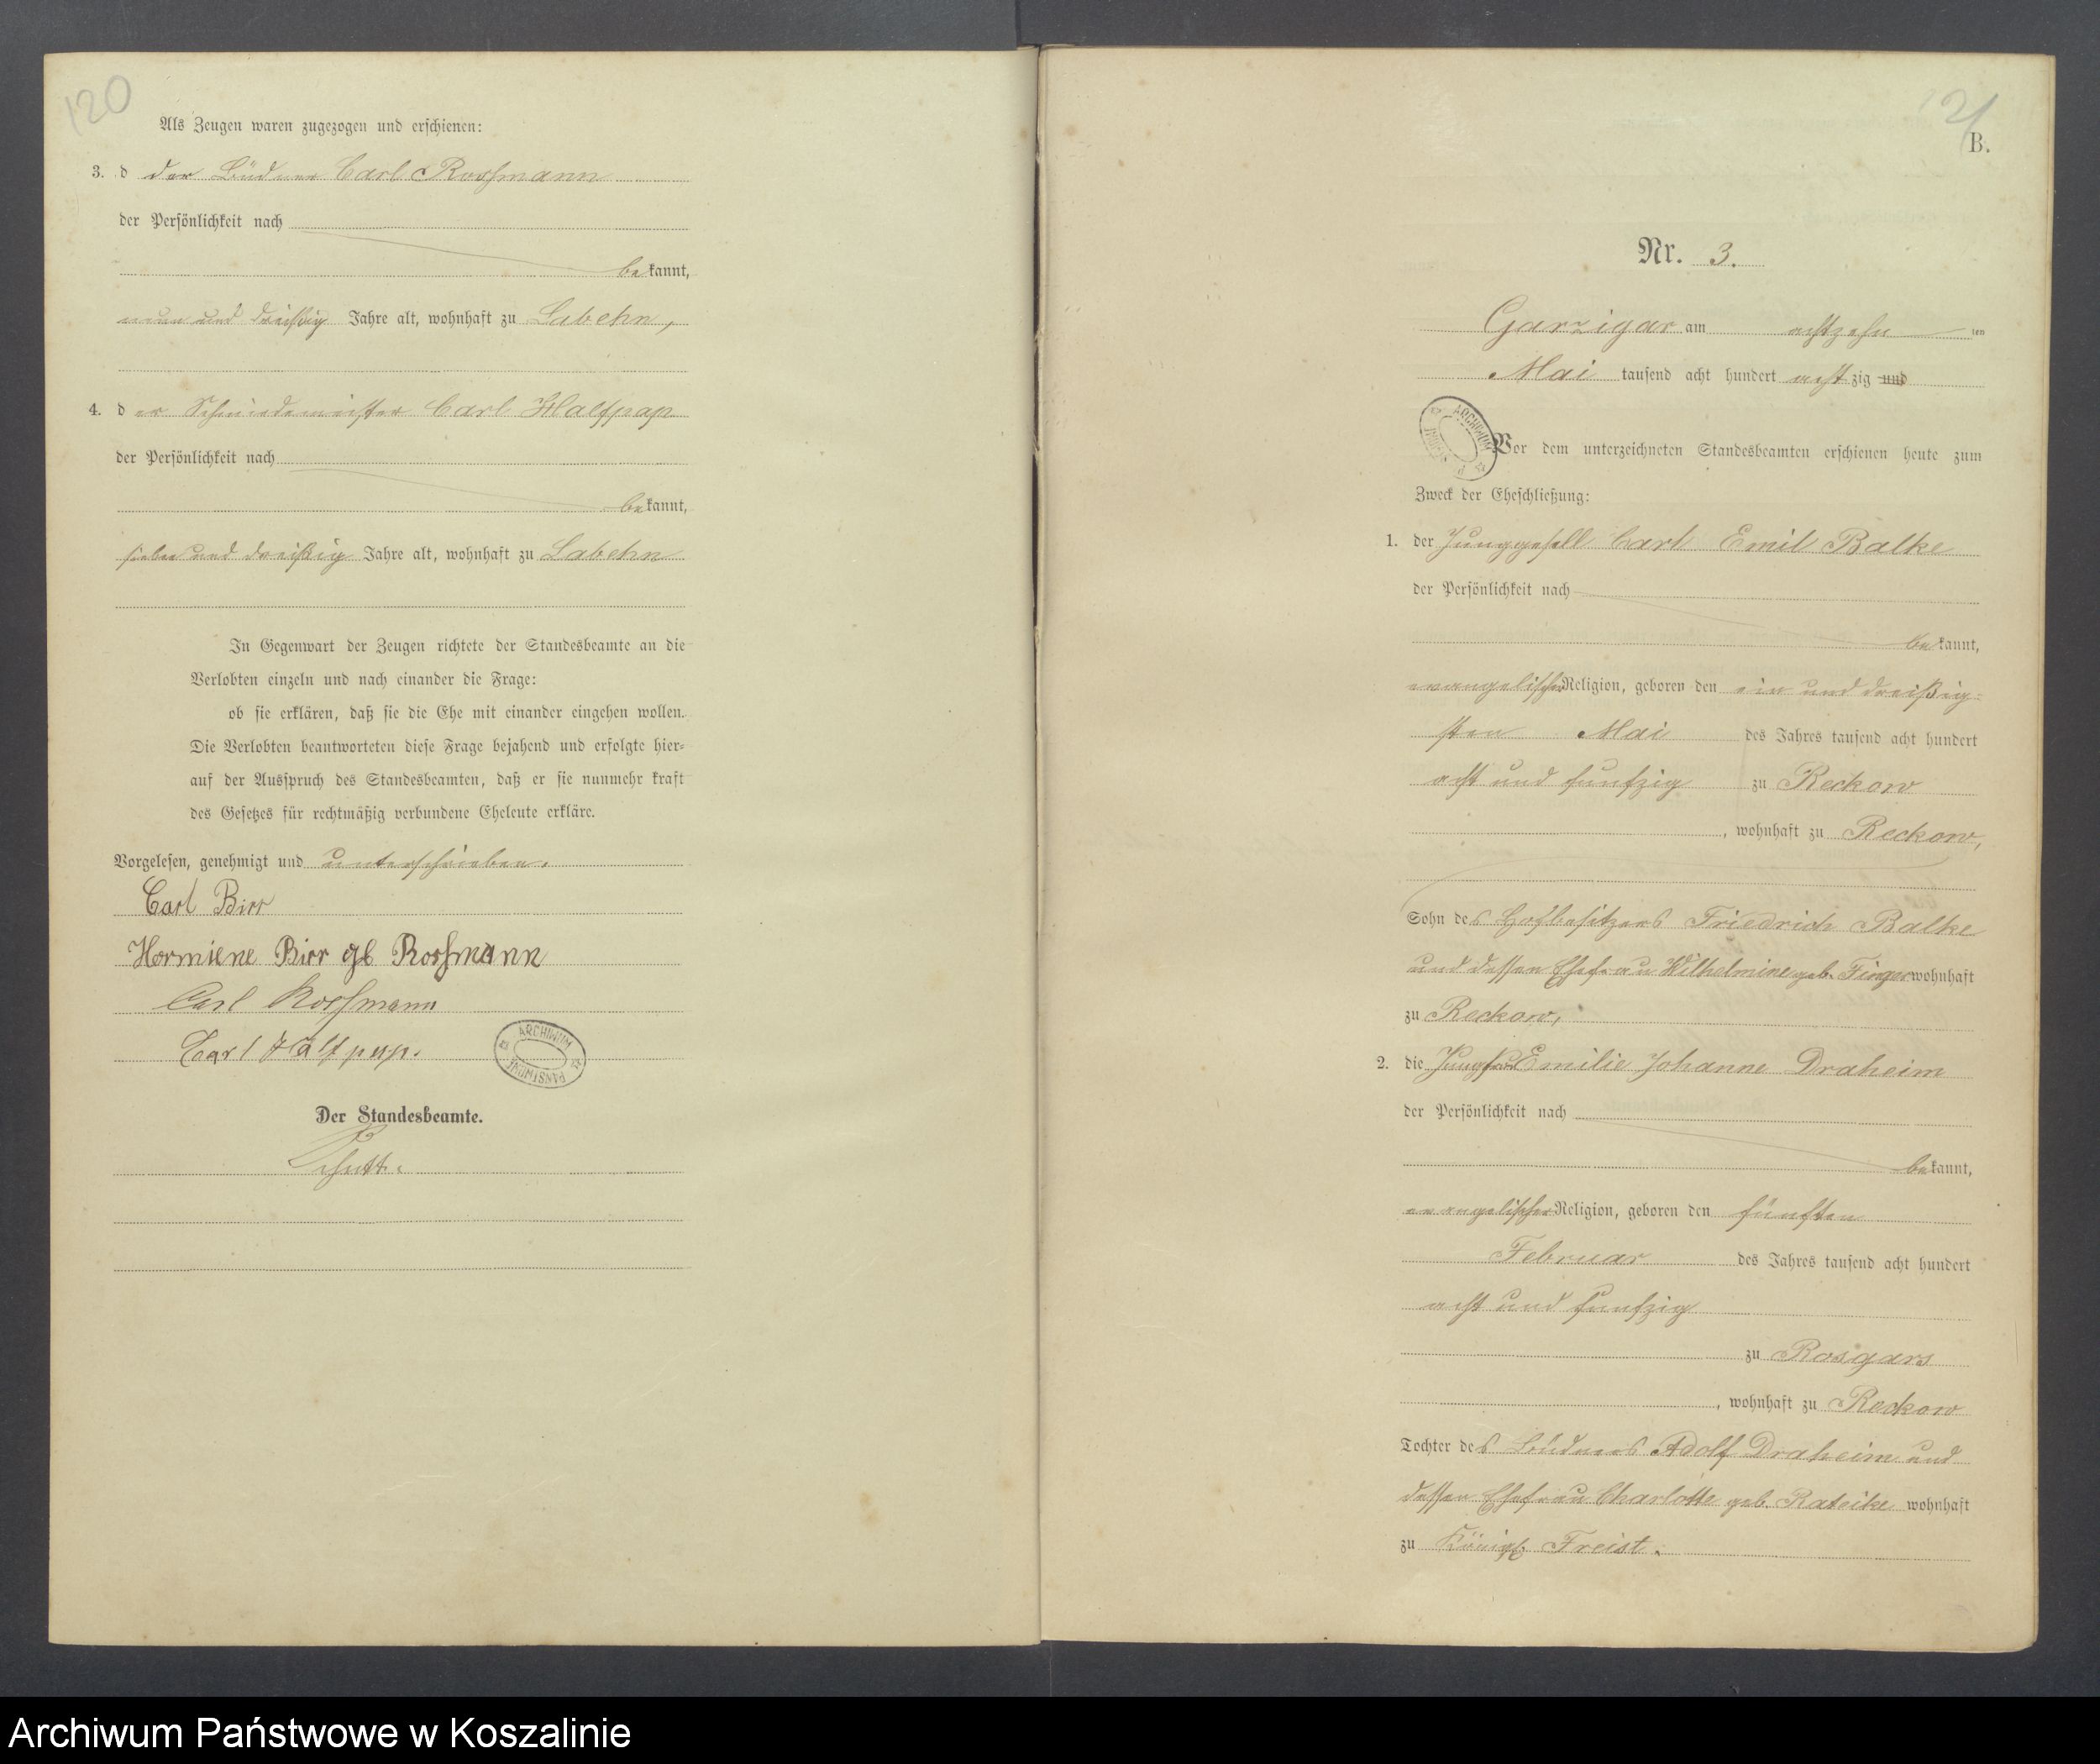 120
Als Zeugen waren zugezogen und erschienen:
3. d der Büdner Carl Rossmann
der Persönlichkeit nach
bekannt,
neun und dreißig Jahre alt, wohnhaft zu Labehn,
4. der Schmiedemeister Carl Halfpap
der Persönlichkeit nach
bekannt,
sieben und dreißig Jahre alt, wohnhaft zu Labehn
In Gegenwart der Zeugen richtete der Standesbeamte an die
Verlobten einzeln und nach einander die Frage:
ob sie erklären, daß sie die Ehe mit einander eingehen wollen.
Die Verlobten beantworteten diese Frage bejahend und erfolgte hier-
auf der Ausspruch des Standesbeamten, daß er sie nunmehr kraft
des Gesetzes für rechtmäßig verbundene Eheleute erkläre.
Vorgelesen, genehmigt und unterschrieben.
Carl Birr
Hermiene Birr gb Rossmann
Carl Rossmann
Carl Halfpap.
ARCHIWUM PAŃSTWOWE
Der Standesbeamte.
121
B.
Nr. 3.
Garzigar am achtzehnten
Mai tausend acht hundert achtzig und
ARCHIWUM
Vor dem unterzeichneten Standesbeamten erschienen heute zum
Zweck der Eheschließung:
1. der Junggesell Carl Emil Balke
der Persönlichkeit nach
bekannt,
evangelischer Religion, geboren den ein und dreißig-
sten Mai des Jahres tausend acht hundert
acht und funfzig zu Reckow
, wohnhaft zu Reckow,
Sohn des Hofbesitzers Friedrich Balke
und dessen Ehefrau Wilhelmine geb. Finger wohnhaft
zu Reckow,
2. die Jungfrau Emilie Johanne Draheim
der Persönlichkeit nach
bekannt,
evangelischer Religion, geboren den fünften
Februar des Jahres tausend acht hundert
acht und funfzig
zu Rosgars
, wohnhaft zu Reckow
Tochter des Büdners Adolf Draheim und
dessen Ehefrau Charlotte geb. Rateike wohnhaft
zu Königl. Freist.
Archiwum Państwowe w Koszalinie